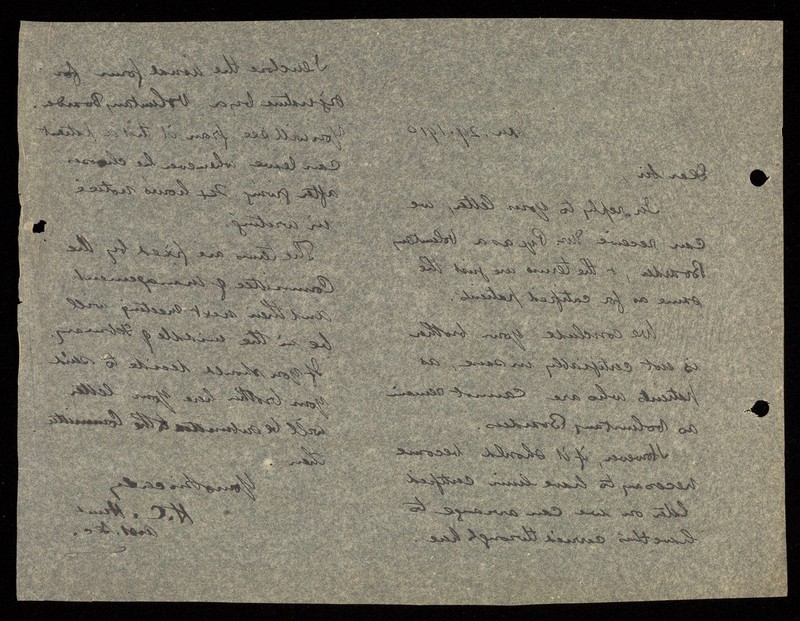 Jan. 29. 1910
Dear Sir,
In reply to your letter, we
can receive Mr. Pye as a Voluntary
Boarder, & the terms are just the
same as for certified patients.
We conclude your brother
is not certifiably insane, as
patients who are cannot remain
as Voluntary Boarders.
However, if it should become
necessary to have him certified
later on we can arrange to
have this carried through here.
I enclose the usual form for
signature by a Voluntary Boarder.
You will see from it that a patient
can leave whenever he chooses
after giving 24 hours notice
in writing.
The terms are fixed by the
Committee of Management
and their next meeting will
be in the middle of February.
If you should decide to send
your brother here your letter
will be submitted to the Committee
then
Yours sincerely,
H.C.